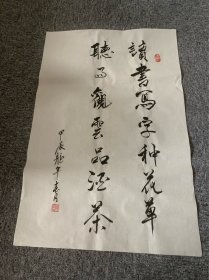 讀書寫字种花草
聽雨觀雲品酒茶
甲辰龍年春月